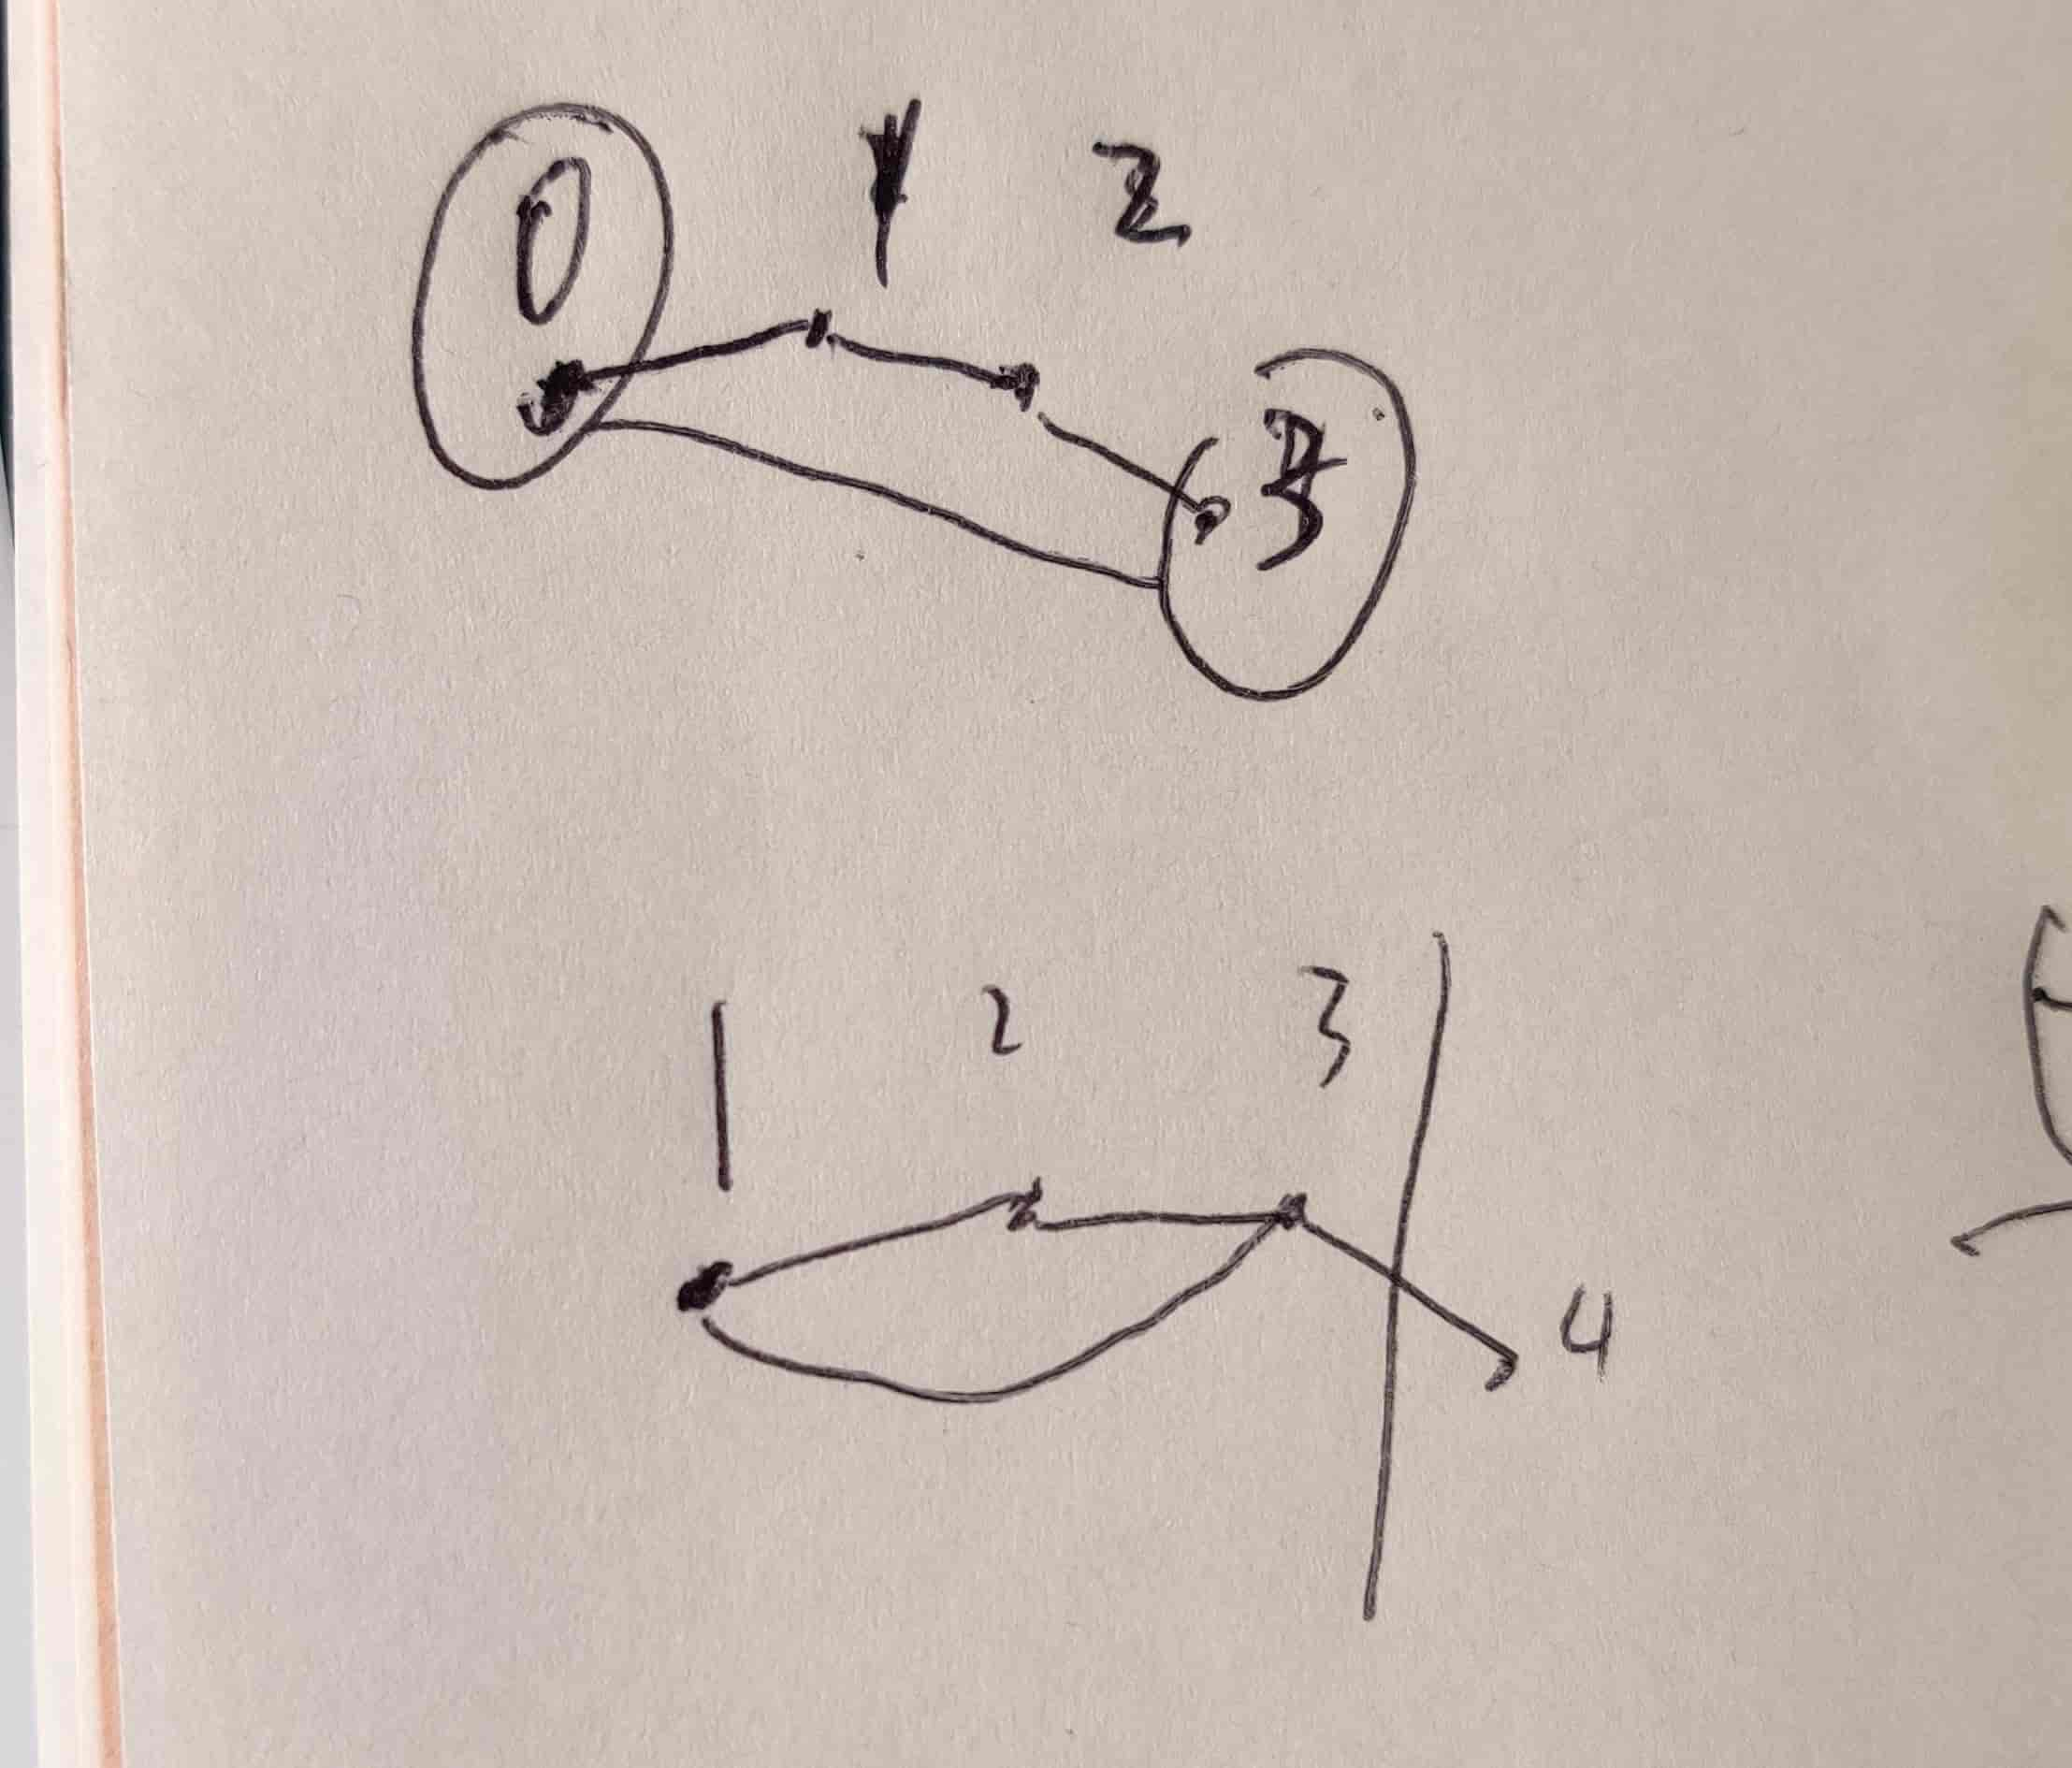 0 1 2
3
1 2 3
4